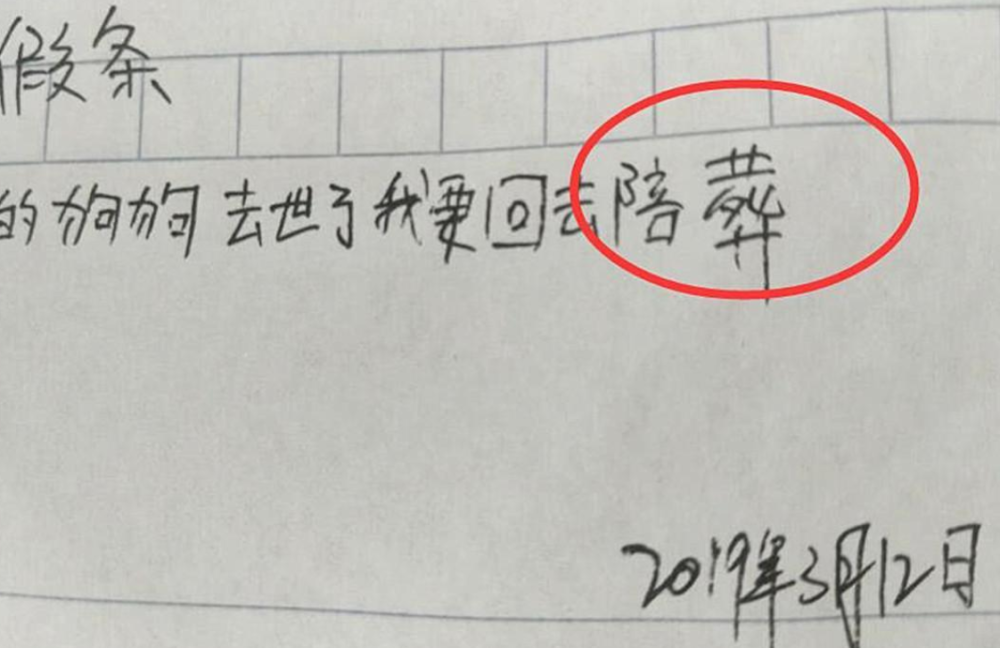 假条
的狗狗去世了我要回去陪葬
2019年3月12日